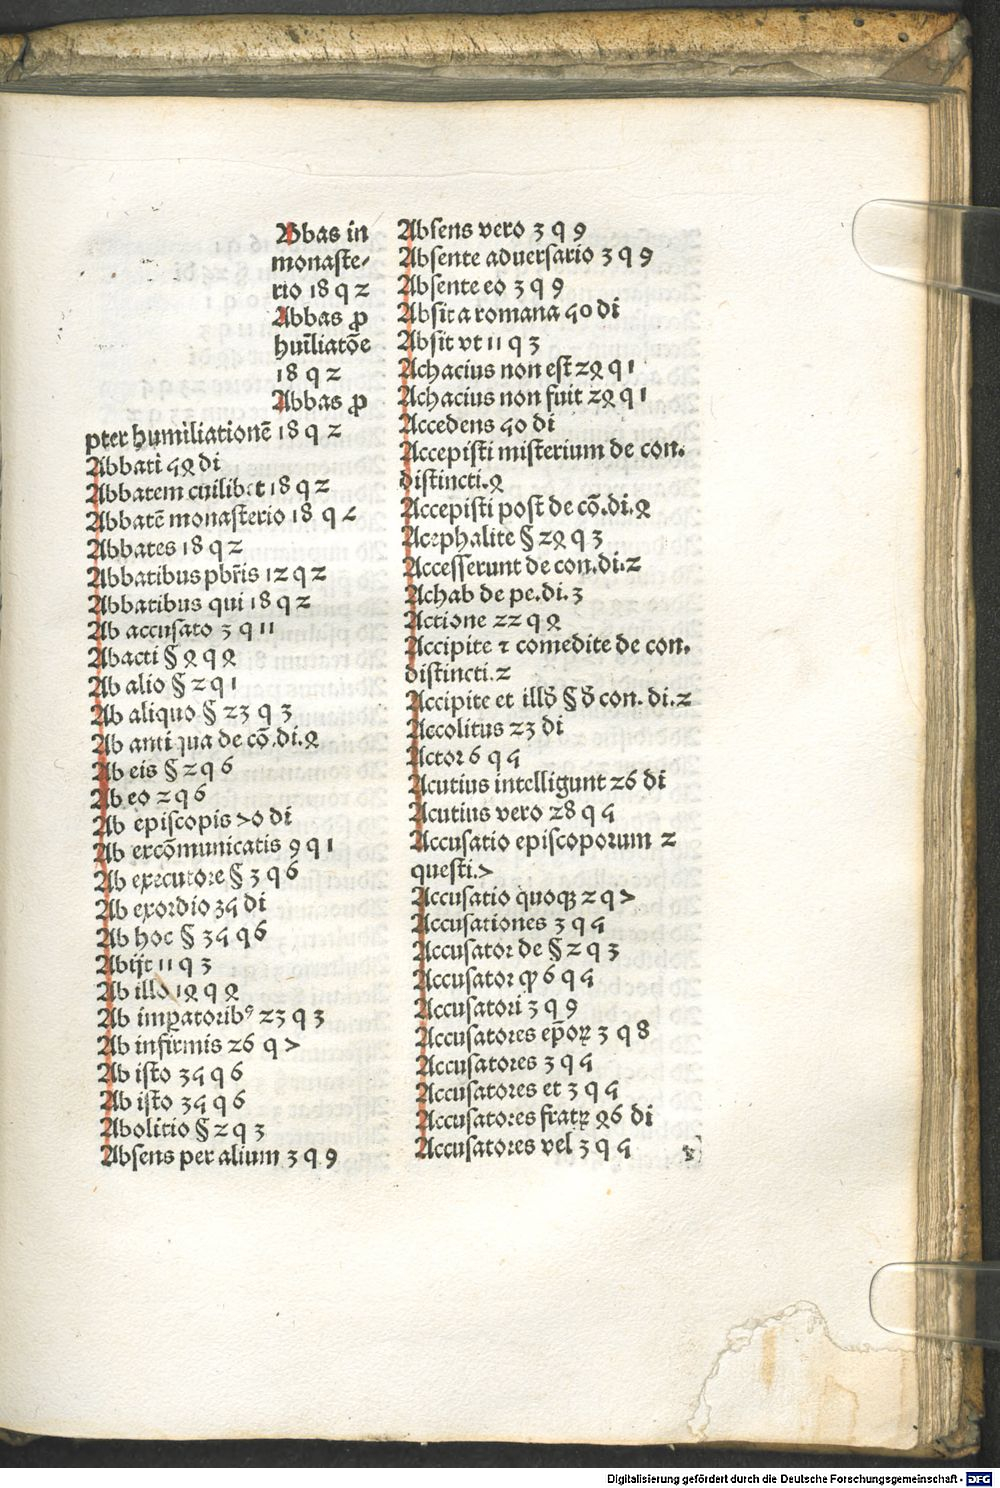 Abbas in
monaste-
rio 18 q 2
Abbas ꝓ
huĩliatõe
18 q 2
Abbas ꝓ
pter humiliationẽ 18 q 2
Abbati 48 di
Abbatem cuilibet 18 q 2
Abbatẽ monasterio 18 q 2
Abbates 18 q 2
Abbatibus pbr̃is 12 q 2
Abbatibus qui 18 q 2
Ab accusato 3 q 11
Abacti § 9 q 9
Ab alio § 2 q 1
Ab aliquo § 23 q 3
Ab antiqua de cõ.di.9
Ab eis § 2 q 6
Ab eo 2 q 6
Ab episcopis >0 di
Ab excõmunicatis 9 q 1
Ab executore § 3 q 6
Ab exordio 34 di
Ab hoc § 34 q 6
Abijt 11 q 3
Ab illo
Ab imꝑatoribꝰ 23 q 3
Ab infirmis 26 q >
Ab isto 34 q 6
Ab isto 34 q 6
Abolitio § 2 q 3
Absens per alium 3 q 9
Absens vero 3 q 9
Absente aduersario 3 q 9
Absente eo 3 q 9
Absit a romana 40 di
Absit vt 11 q 3
Achacius non est 29 q 1
Achacius non fuit 29 q 1
Accedens 40 di
Accepisti misterium de con.
distincti.9
Accepisti post de cõ.di.9
Acephalite § 29 q 3
Accesserunt de con.di.2
Achab de pe.di.3
Actione 22 q 9
Accipite ⁊ comedite de con.
distincti.2
Accipite et illđ § đ con. di.2
Accolitus 23 di
Actor 6 q 4
Acutius intelligunt 26 di
Acutius vero 28 q 4
Accusatio episcoporum 2
questi.>
Accusatio quoqꝫ 2 q >
Accusationes 3 q 4
Accusator de § 2 q 3
Accusator 6 q 4
Accusatori 3 q 9
Accusatores ep̃oꝝ 3 q 8
Accusatores 3 q 4
Accusatores et 3 q 4
Accusatores fratꝝ 96 di
Accusatores vel 3 q 4
Digitalisierung gefördert durch die Deutsche Forschungsgemeinschaft - DFG